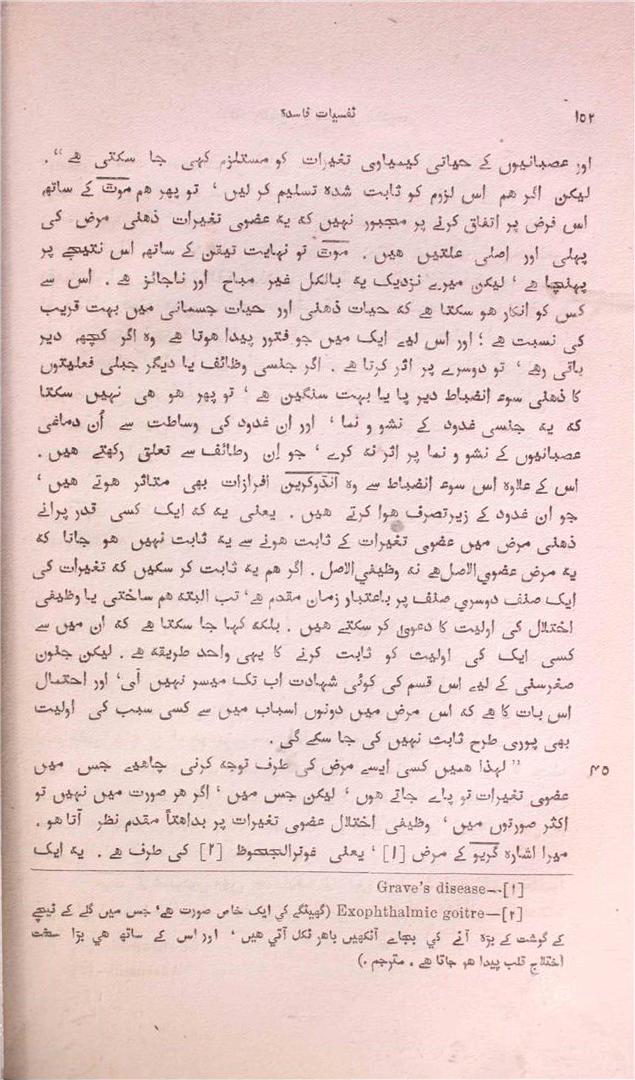 ۱۵۲ نفسیات فاسدہ
اور عصبانیوں کے حیاتی کیمیاوی تغیرات کو مستلزم کہی جا سکتی ھے“ .
لیکن اگر ھم اس لزوم کو ثابت شدہ تسلیم کر لیں ' تو پھر ھم موٹ کے ساتھ
اس فرض پر اتفاق کرنے پر مجبور نہیں کہ یہ عضوی تغیرات ذھنی مرض کی
پہلی اور اصلی علتیں ھیں . موٹ تو نہایت تیقن کے ساتھ اس نتیجے پر
پہنچا ھے ' لیکن میرے نزدیک یہ بالکل غیر مباح اور ناجائز ھے . اس سے
کس کو انکار ھو سکتا ھے کہ حیات ذھنی اور حیات جسمانی میں بہت قریب
کی نسبت ھے ؛ اور اس لیے ایک میں جو فتور پیدا ھوتا ھے وہ اگر کچھہ دیر
باقی رھے ' تو دوسرے پر اثر کرتا ھے . اگر جنسی وظائف یا دیگر جبلی فعلیتوں
کا ذھنی سوء انضباط دیر پا یا بہت سنگین ھے ' تو پھر ھو ھی نہیں سکتا
کہ یہ جنسی غدود کے نشو و نما ' اور ان غدود کی وساطت سے اُن دماغی
عصبانیوں کے نشو و نما پر اثر نہ کرے ' جو اِن وظائف سے تعلق رکھتے ھیں .
اس کے علاوہ اس سوء انضباط سے وہ انڈوکرین افرازات بھی متاثر ھوتے ھیں '
جو ان غدود کے زیرتصرف ھوا کرتے ھیں . یعنی یہ کہ ایک کسی قدر پرانے
ذھنی مرض میں عضوی تغیرات کے ثابت ھونے سے یہ ثابت نہیں ھو جاتا کہ
یہ مرض عضوی‌الاصل ھے نہ وظیفی‌الاصل . اگر ھم یہ ثابت کر سکیں کہ تغیرات کی
ایک صنف دوسری صنف پر باعتبار زمان مقدم ھے ' تب البتہ ھم ساختی یا وظیفی
اختلال کی اولیت کا دعویٰ کر سکتے ھیں . بلکہ کہا جا سکتا ھے کہ ان میں سے
کسی ایک کی اولیت کو ثابت کرنے کا یہی واحد طریقہ ھے . لیکن جنون
صغرسنی کے لیے اس قسم کی کوئی شہادت اب تک میسر نہیں آی ' اور احتمال
اس بات کا ھے کہ اس مرض میں دونوں اسباب میں سے کسی سبب کی اولیت
بھی پوری طرح ثابت نہیں کی جا سکے گی .
” لہذا ھمیں کسی ایسے مرض کی طرف توجہ کرنی چاھیے جس میں
عضوی تغیرات تو پاے جاتے ھوں ' لیکن جس میں ' اگر ھر صورت میں نہیں تو
اکثر صورتوں میں ' وظیفی اختلال عضوی تغیرات پر بداھتاً مقدم نظر آتا ھو .
میرا اشارہ گریو کے مرض [۱] ' یعنی غوترالجحوظ [۲] کی طرف ھے . یہ ایک
[۱]—Grave's disease
[۲]—Exophthalmic goitre (گھینگے کی ایک خاص صورت ھے ' جس میں گلے کے نیچے
کے گوشت کے بڑہ آنے کی بجاے آنکھیں باھر نکل آتی ھیں ' اور اس کے ساتھ ھی بڑا سخت
اختلاج قلب پیدا ھو جاتا ھے . مترجم .)